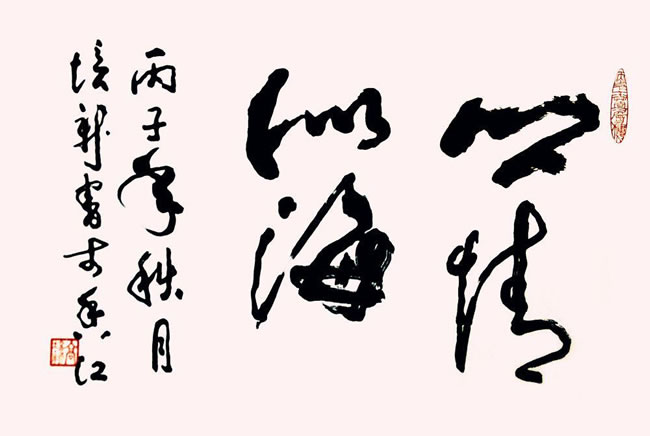 心情
似海
丙子年秋月
新書于香江